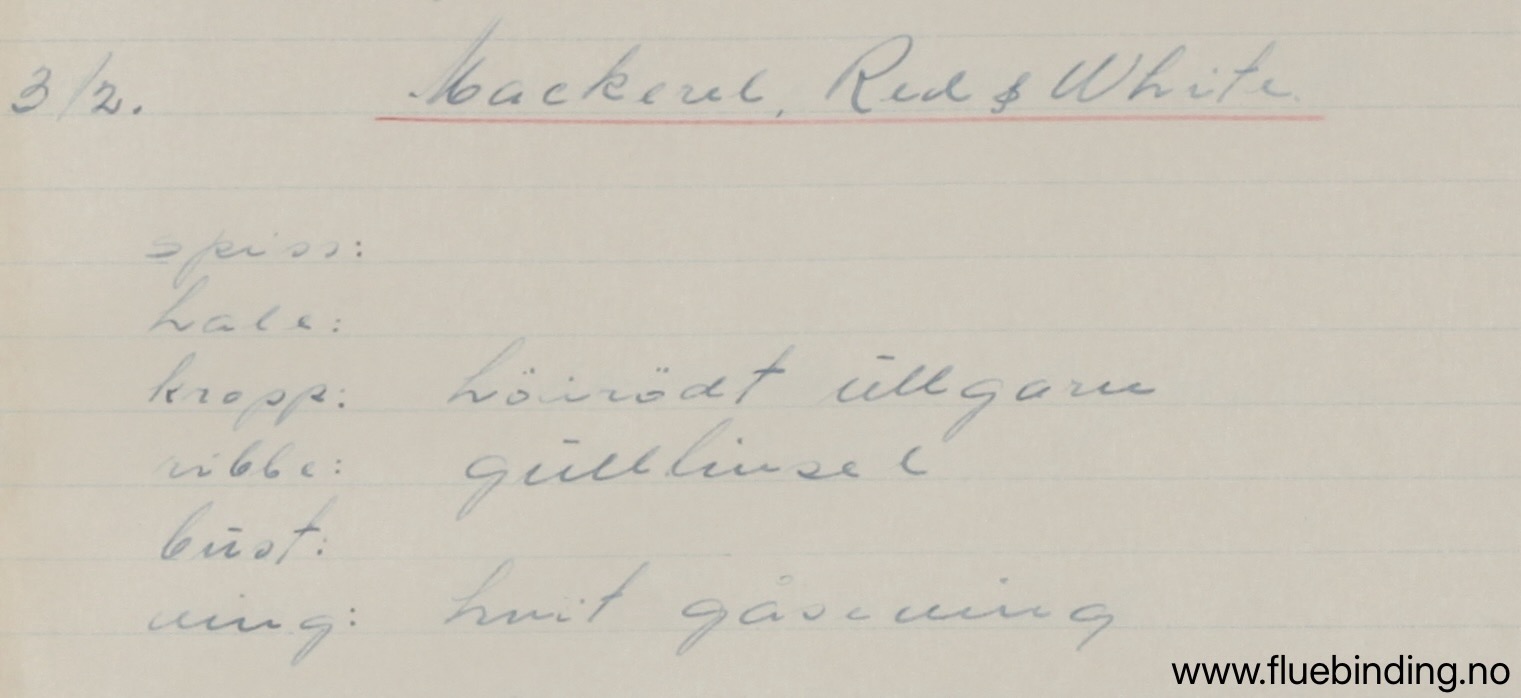 3/2. Mackerel, Red & White
spiss:
hale:
kropp: höirödt ullgarn
ribbe: gulltinsel
bust:
ving: hvit gåseving
www.fluebinding.no